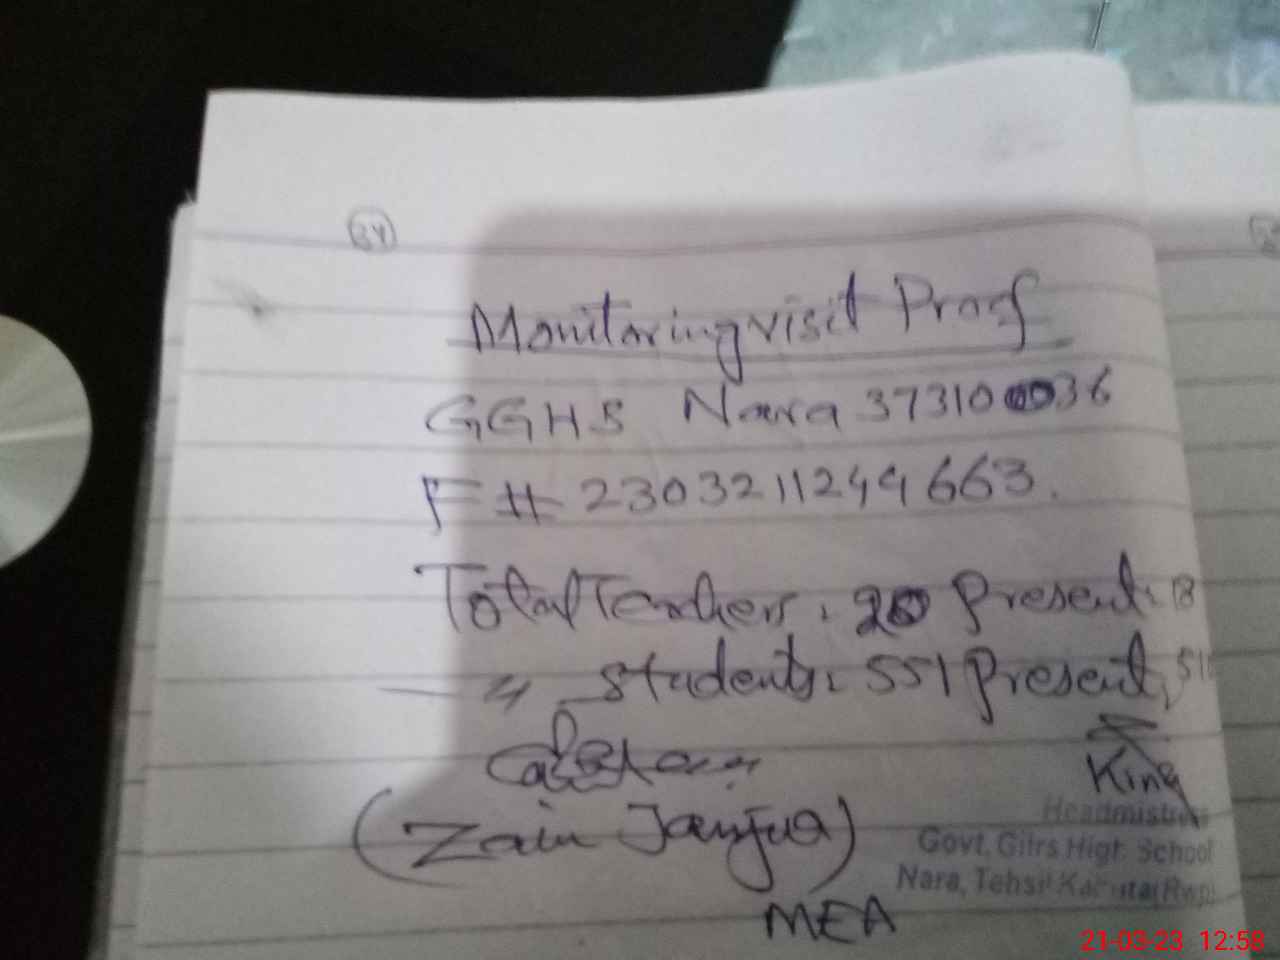 34
Monitoring visit Proof
GGHS Nara 37310 36
F# 2303211244663.
Total Teachers: 20 Present: 18
" Students: 551 Present: 51
(Zain Janjua)
MEA
Headmistress
Govt. Gilrs High School
Nara, Tehsil Kahuta (Rwp)
21-03-23 12:58